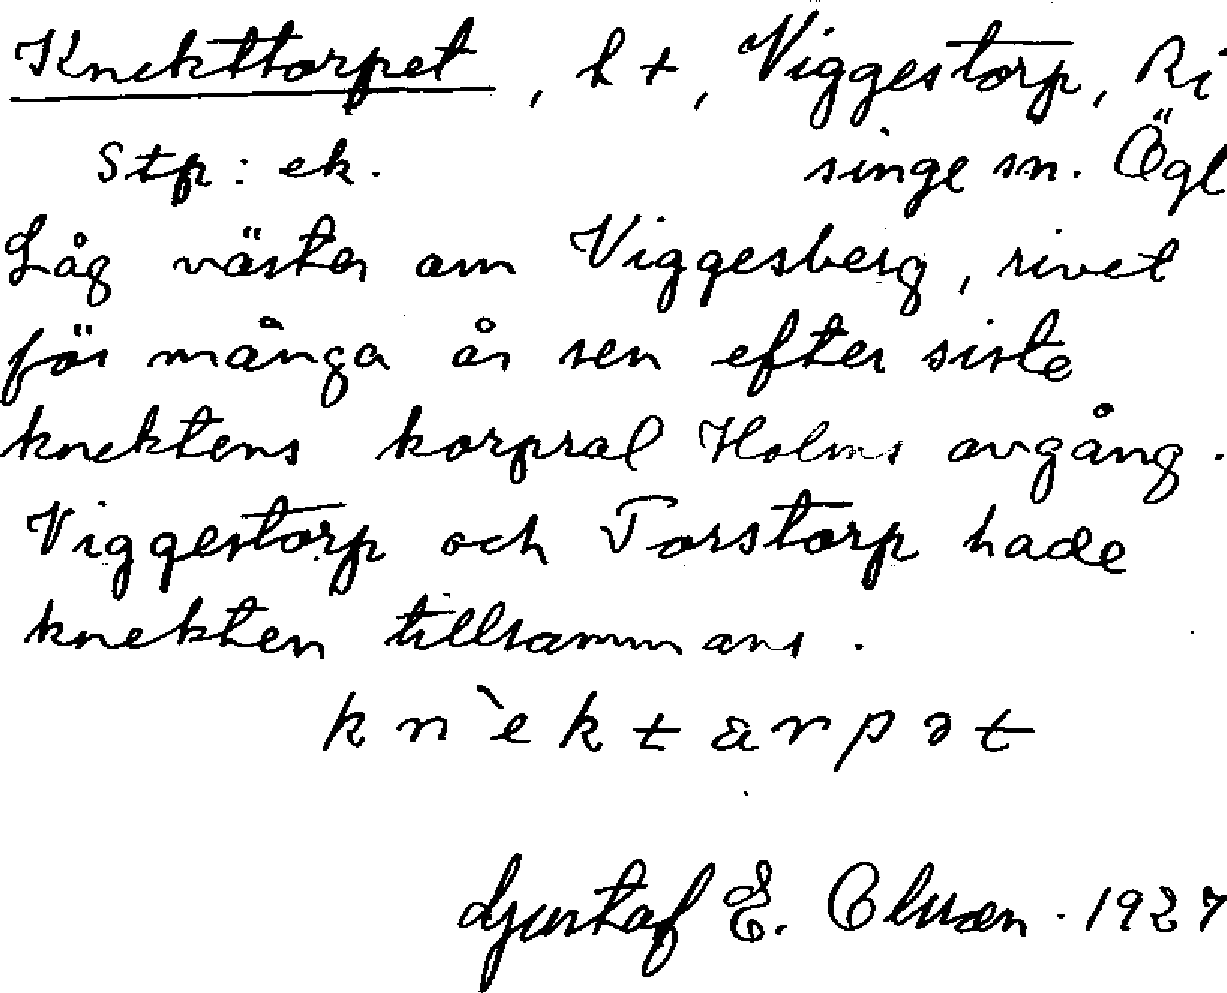 Knekttorpet, lt, Viggestorp, Ri
Stfp: ek. singe sn. Ögl
Låg väster om Viggesberg, rivet
för många år sen efter siste
knektens korpral Holms avgång.
Viggestorp och Torstorp hade
knekten tillsammans.
kn`ektarpət
Gustaf E. Olsson. 1927